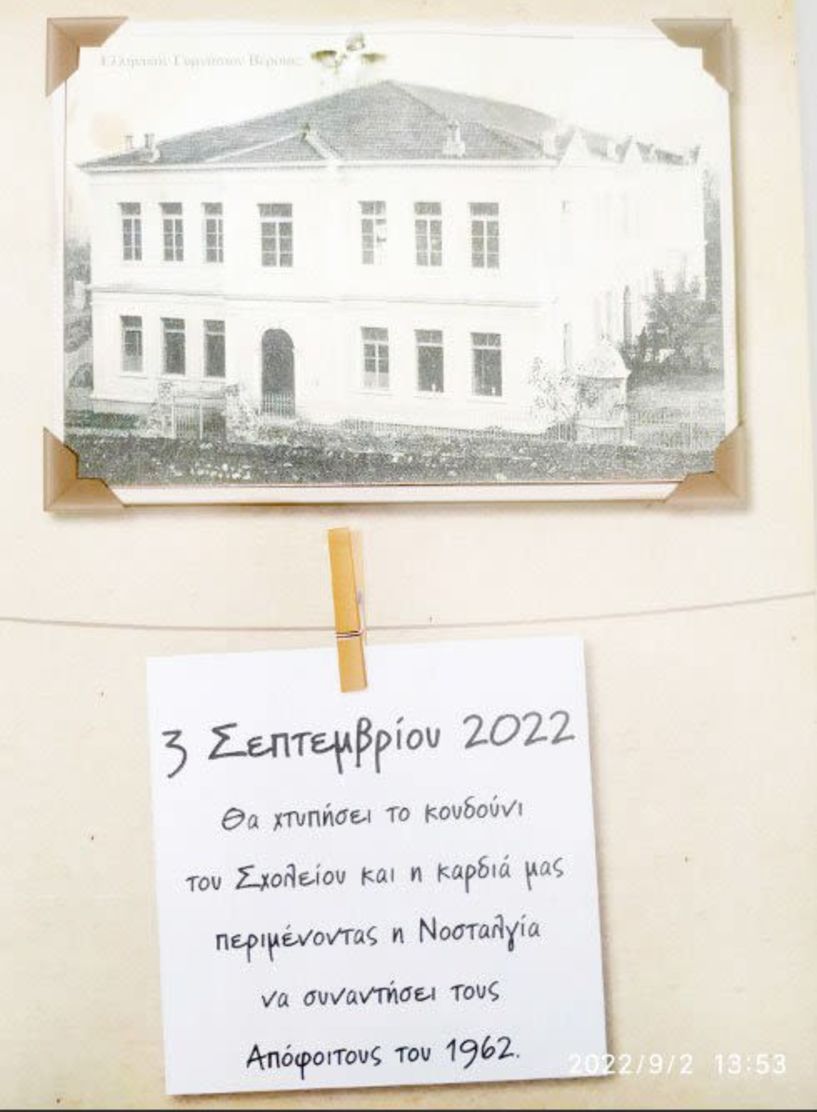 Ελληνικόν Γυμνάσιον Βέροιας
3 Σεπτεμβρίου 2022
Θα χτυπήσει το κουδούνι
του Σχολείου και η καρδιά μας
περιμένοντας η Νοσταλγία
να συναντήσει τους
Απόφοιτους του 1962.
2022/9/2 13:53